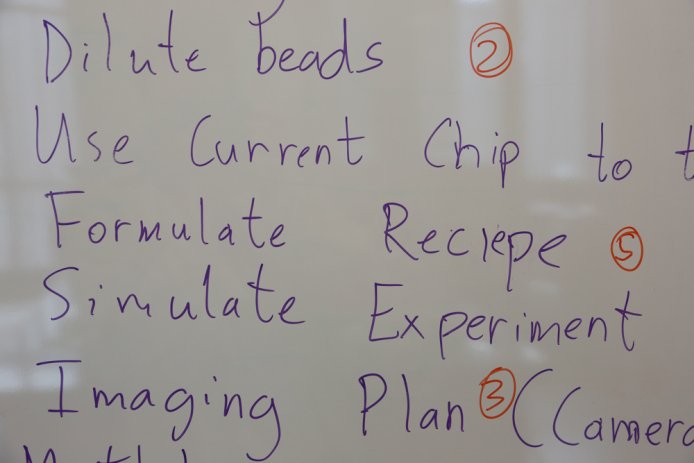 Dilute beads ②
Use Current Chip to t
Formulate Reciepe ⑤
Simulate Experiment
Imaging Plan ③ (Camera